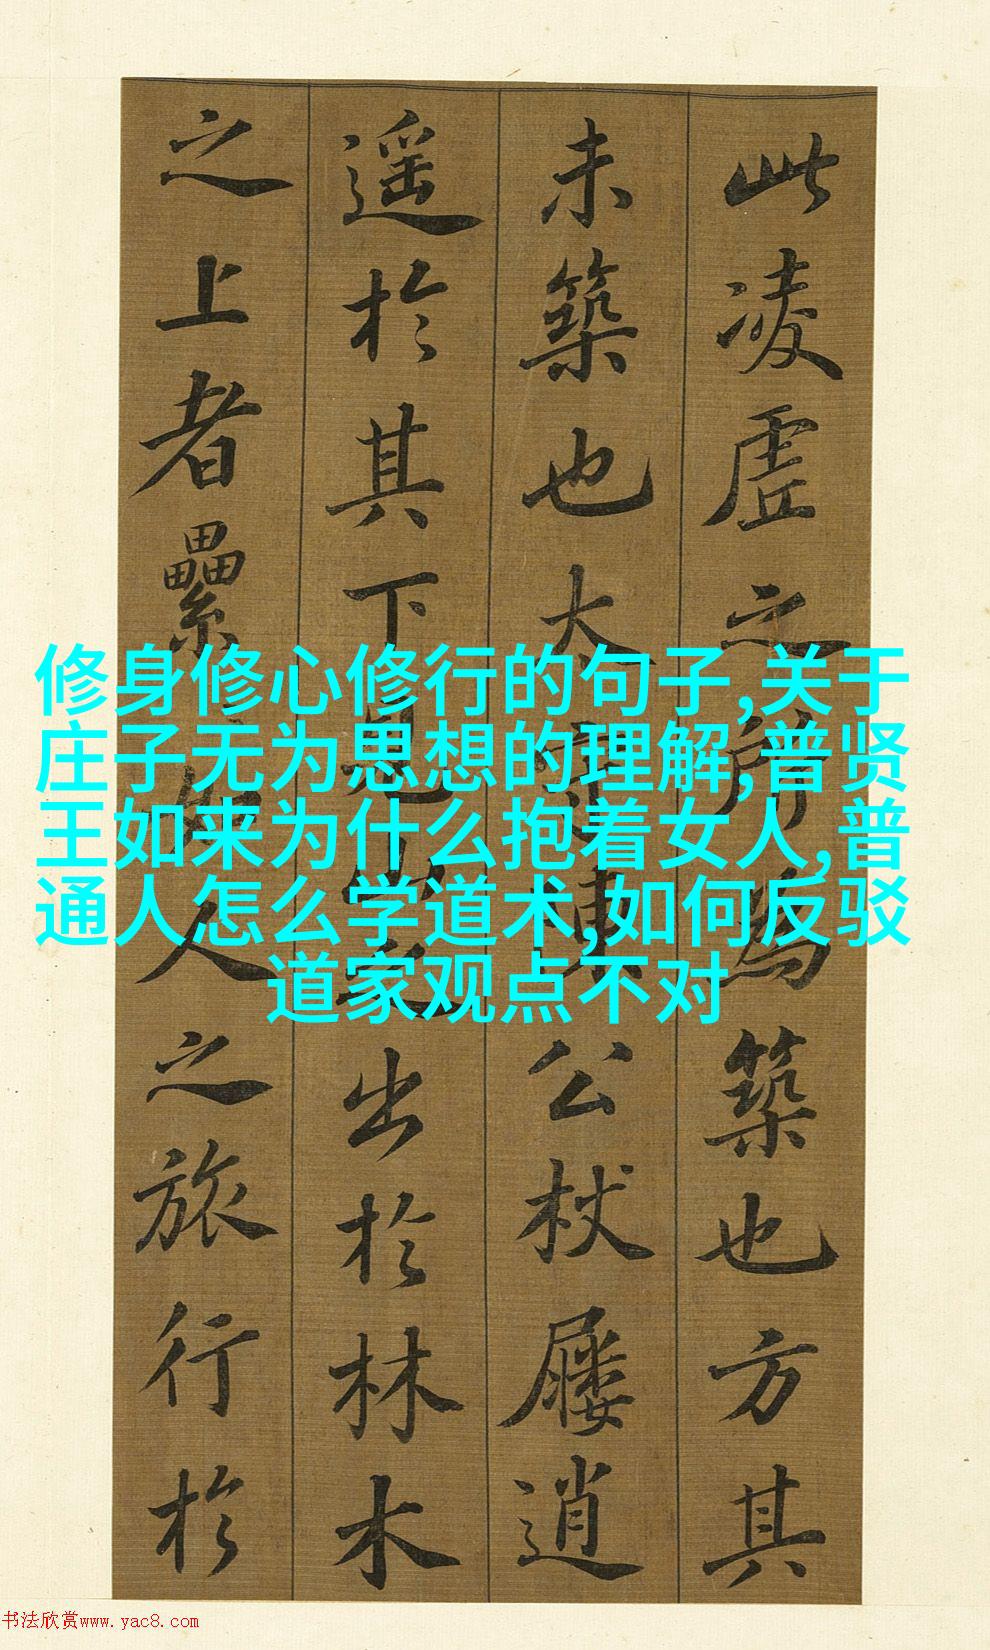 此凌虛之所為築也方其
未築也太守陳公杖屨逍
遥於其下見山之出於林木
之上者纍〻如人之旅行於
修身修心修行的句子,关于
庄子无为思想的理解,普贤
王如来为什么抱着女人,普
通人怎么学道术,如何反驳
道家观点不对
书法欣赏www.yac8.com